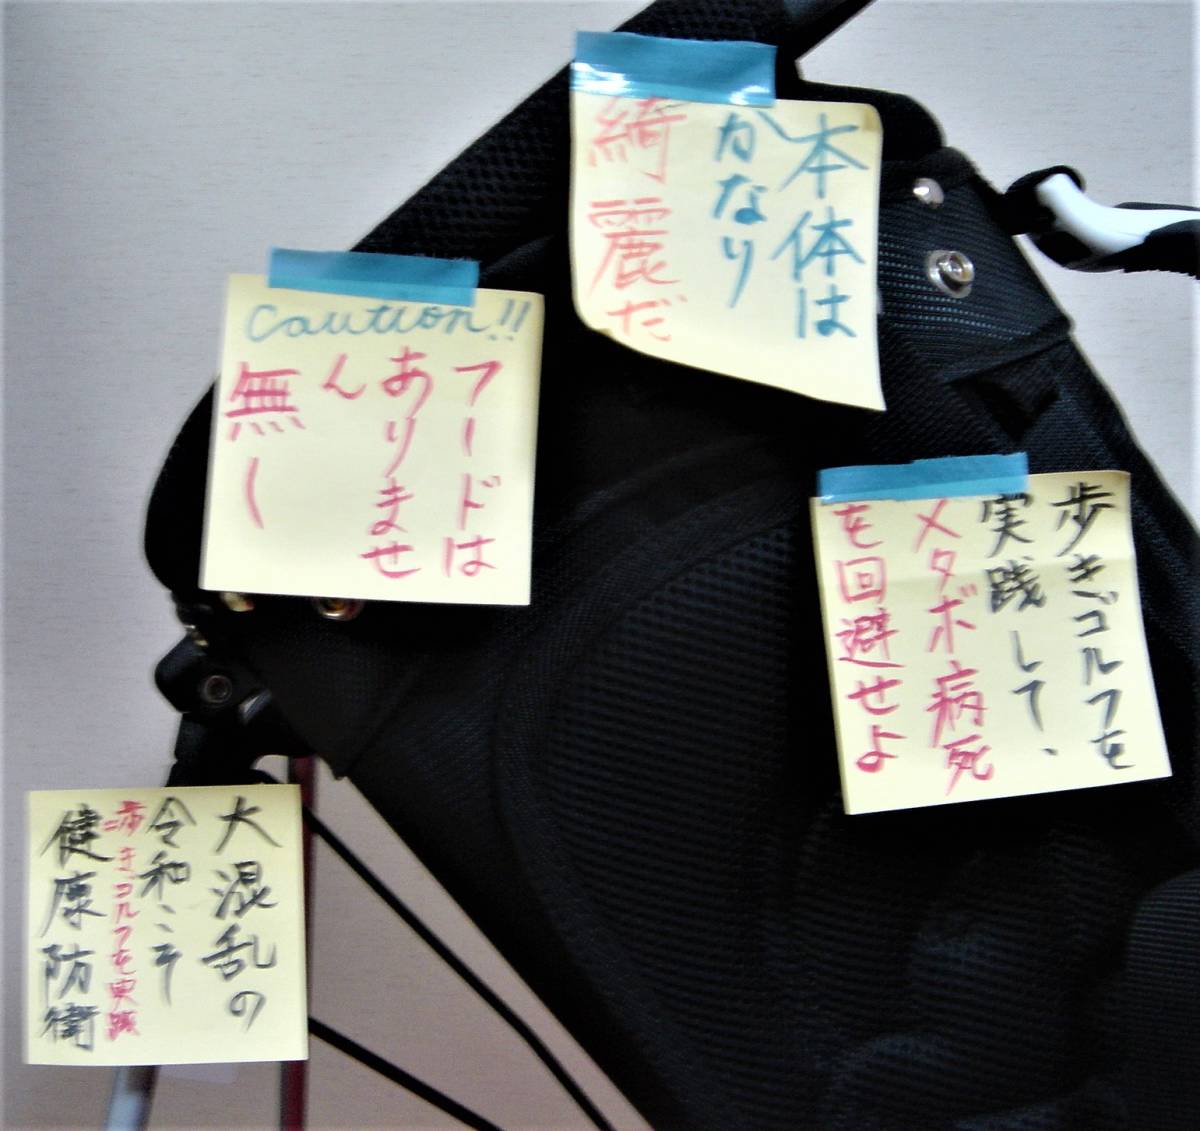 本体は
かなり
綺麗だ
Caution!!
フードは
ありませ
ん
無し
歩きゴルフを
実践して、
メタボ病死
を回避せよ
大混乱の
令和こそ
=歩きゴルフを実践
健康防衛